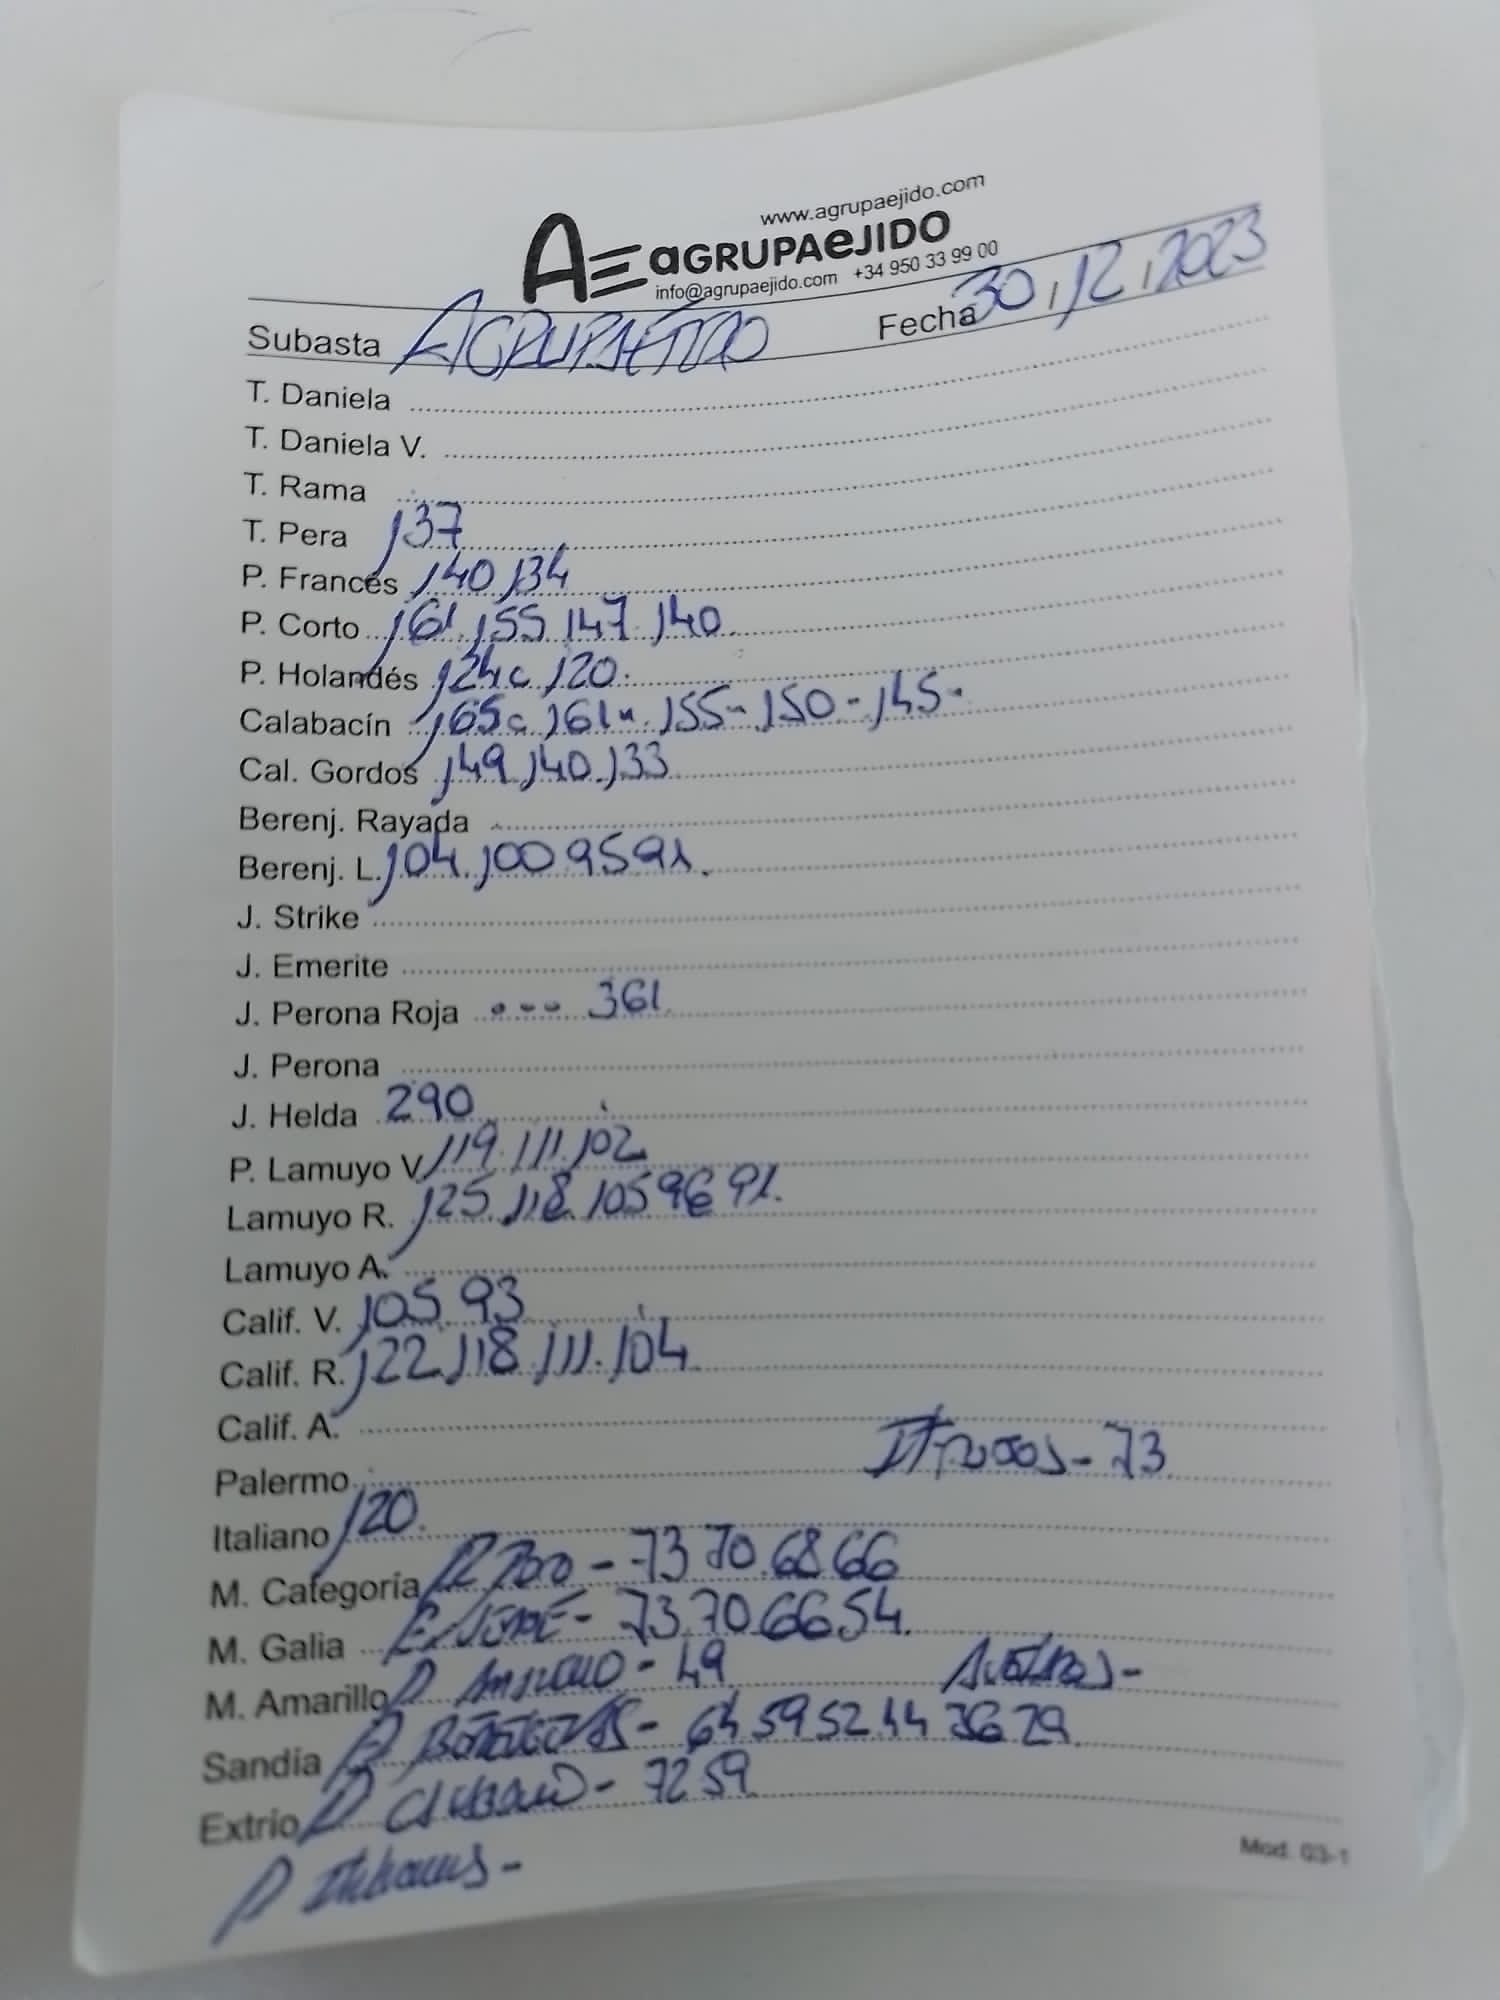 www.agrupaejido.com
AE aGRUPAeJIDO
info@agrupaejido.com +34 950 33 99 00
Subasta AGRUPAEJIDO Fecha 30,12,2023
T. Daniela
T. Daniela V.
T. Rama
T. Pera 137
P. Francés 140 134
P. Corto 161 155 147 140
P. Holandés 124c 120
Calabacín 165c 161". 155- 150- 145-
Cal. Gordos 149 140 133
Berenj. Rayada
Berenj. L. 104 100 95 91.
J. Strike
J. Emerite
J. Perona Roja --- 361
J. Perona
J. Helda 290
P. Lamuyo V 119 111 102
Lamuyo R. 125 118 105 96 91.
Lamuyo A.
Calif. V. 105 93
Calif. R. 122 118 111 104
Calif. A.
Palermo - 73
Italiano 120.
M. Categoría - 73 70 68 66
M. Galia - 73 70 66 54.
M. Amarillo P. Amarillo - 49
Sandía P. - 64 59 52 44 36 29
Extrio P. - 72 59
P. Italianos -
Mod. 03-1